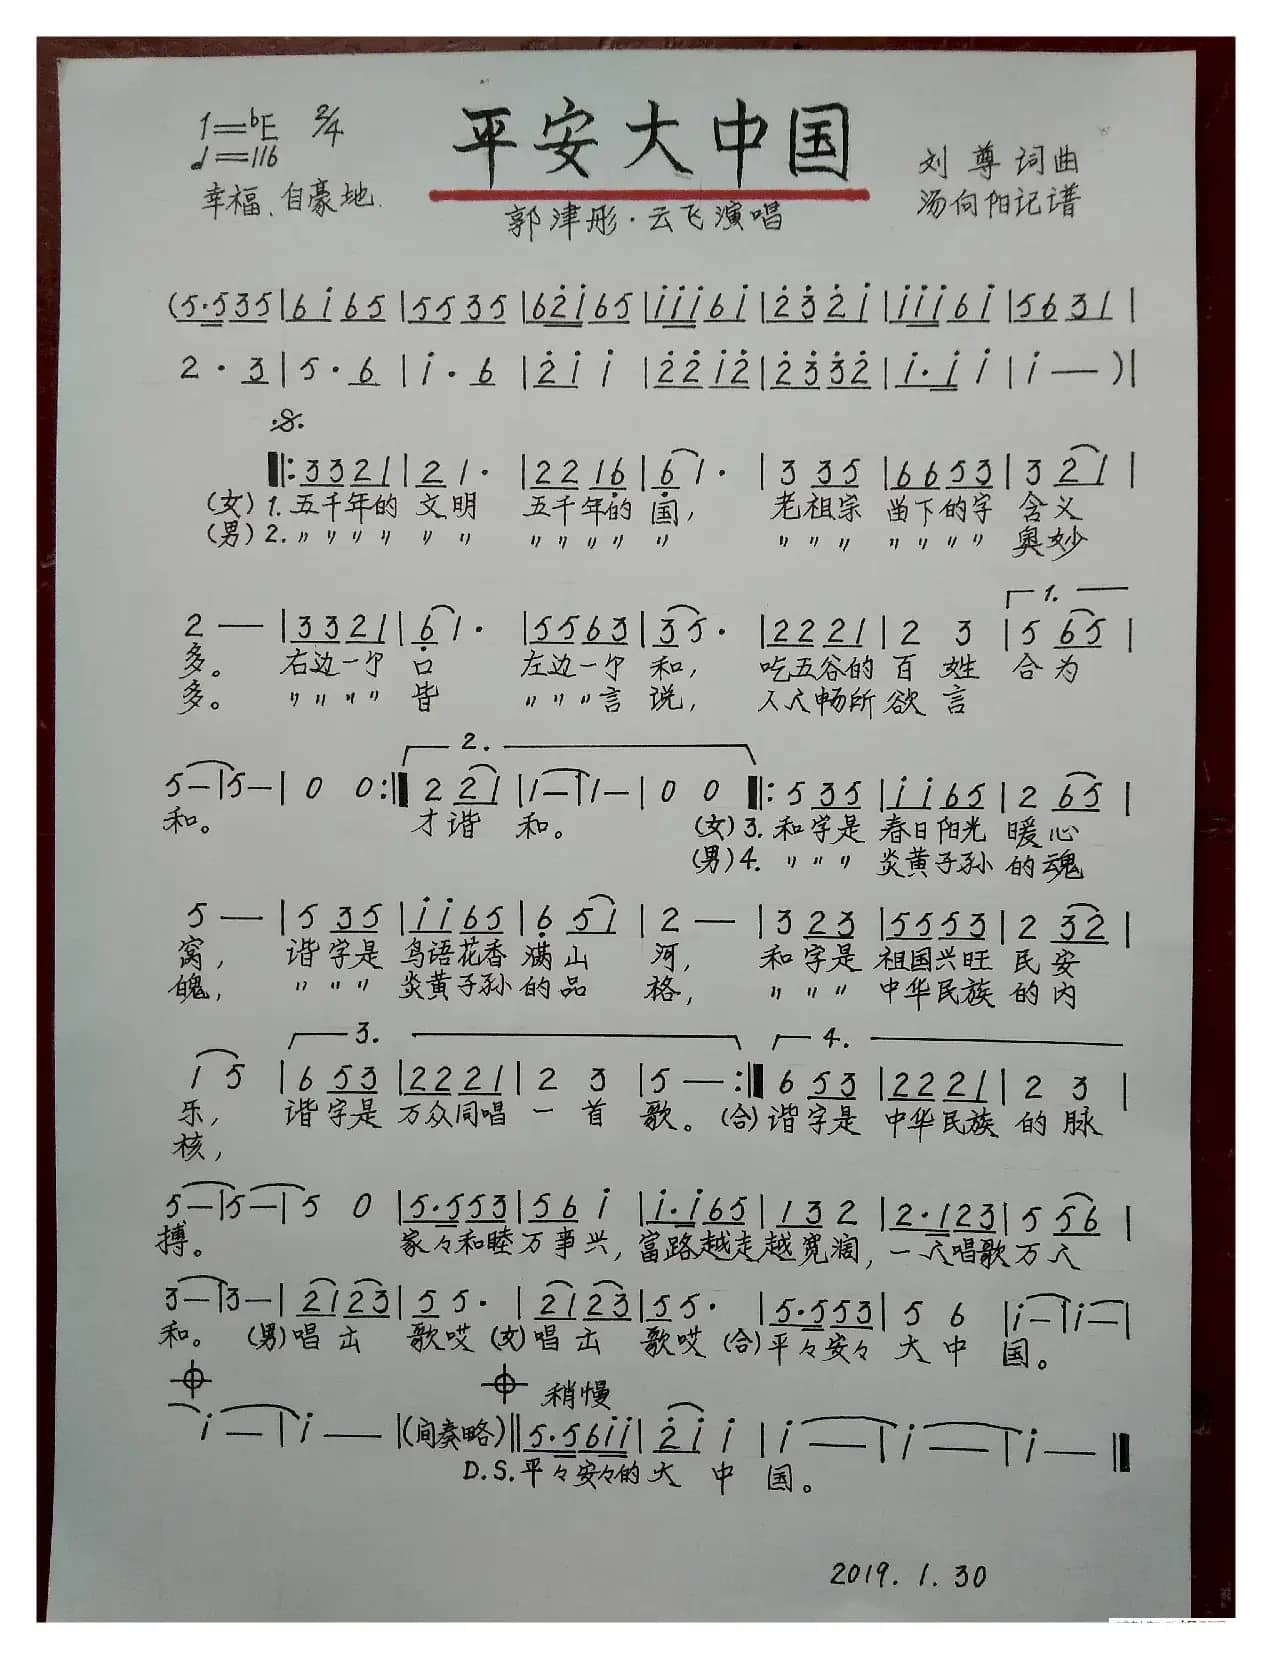 1=♭E 2/4
♩=116
幸福、自豪地
平安大中国
郭津彤·云飞演唱
刘尊词曲
汤向阳记谱
(5·535|6i65|5535|62i65|iii6i|232i|iii6i|5631|
2·3|5·6|i·6|2ii|22i2|2332|i·ii|i—)|
𝄋
‖:3321|21·|2216|61·|3 35|6653|3 21|
(女)1.五千年的 文明 五千年的 国, 老祖宗 留下的字 含义
(男)2.〃〃〃〃 〃〃 〃〃〃〃 〃 〃〃〃 〃〃〃〃 奥妙
1.
2—|3321|61·|5563|35·|2221|2 3|5 65|
多。 右边一个 口 左边一个 和, 吃五谷的 百姓 合为
多。 〃〃〃〃 皆 〃〃〃言 说, 人人畅所 欲言
2.
5—|5—|0 0:‖2 21|1—|1—|0 0‖:5 35|ii65|2 65|
和。 才谐 和。 (女)3.和字是 春日阳光 暖心
(男)4.〃〃〃 炎黄子孙 的魂
5—|5 35|ii65|6 51|2—|3 23|5553|2 32|
窝, 谐字是 鸟语花香 满山 河, 和字是 祖国兴旺 民安
魄, 〃〃〃 炎黄子孙 的品 格, 〃〃〃 中华民族 的内
3. 4.
1 5|6 53|2221|2 3|5—:‖6 53|2221|2 3|
乐, 谐字是 万众同唱 一首 歌。(合)谐字是 中华民族 的脉
核,
5—|5—|5 0|5·553|56i|i·i65|132|2·123|5 56|
搏。 家々和睦 万事兴, 富路越走 越宽阔, 一人唱歌 万人
3—|3—|2123|55·|2123|55·|5·553|5 6|i—|i—|
和。 (男)唱出 歌哎 (女)唱出 歌哎 (合)平々安々 大中 国。
稍慢
i—|i—|(间奏略)‖5·56ii|2i i|i—|i—|i—‖
D.S.平々安々的大 中 国。
2019.1.30